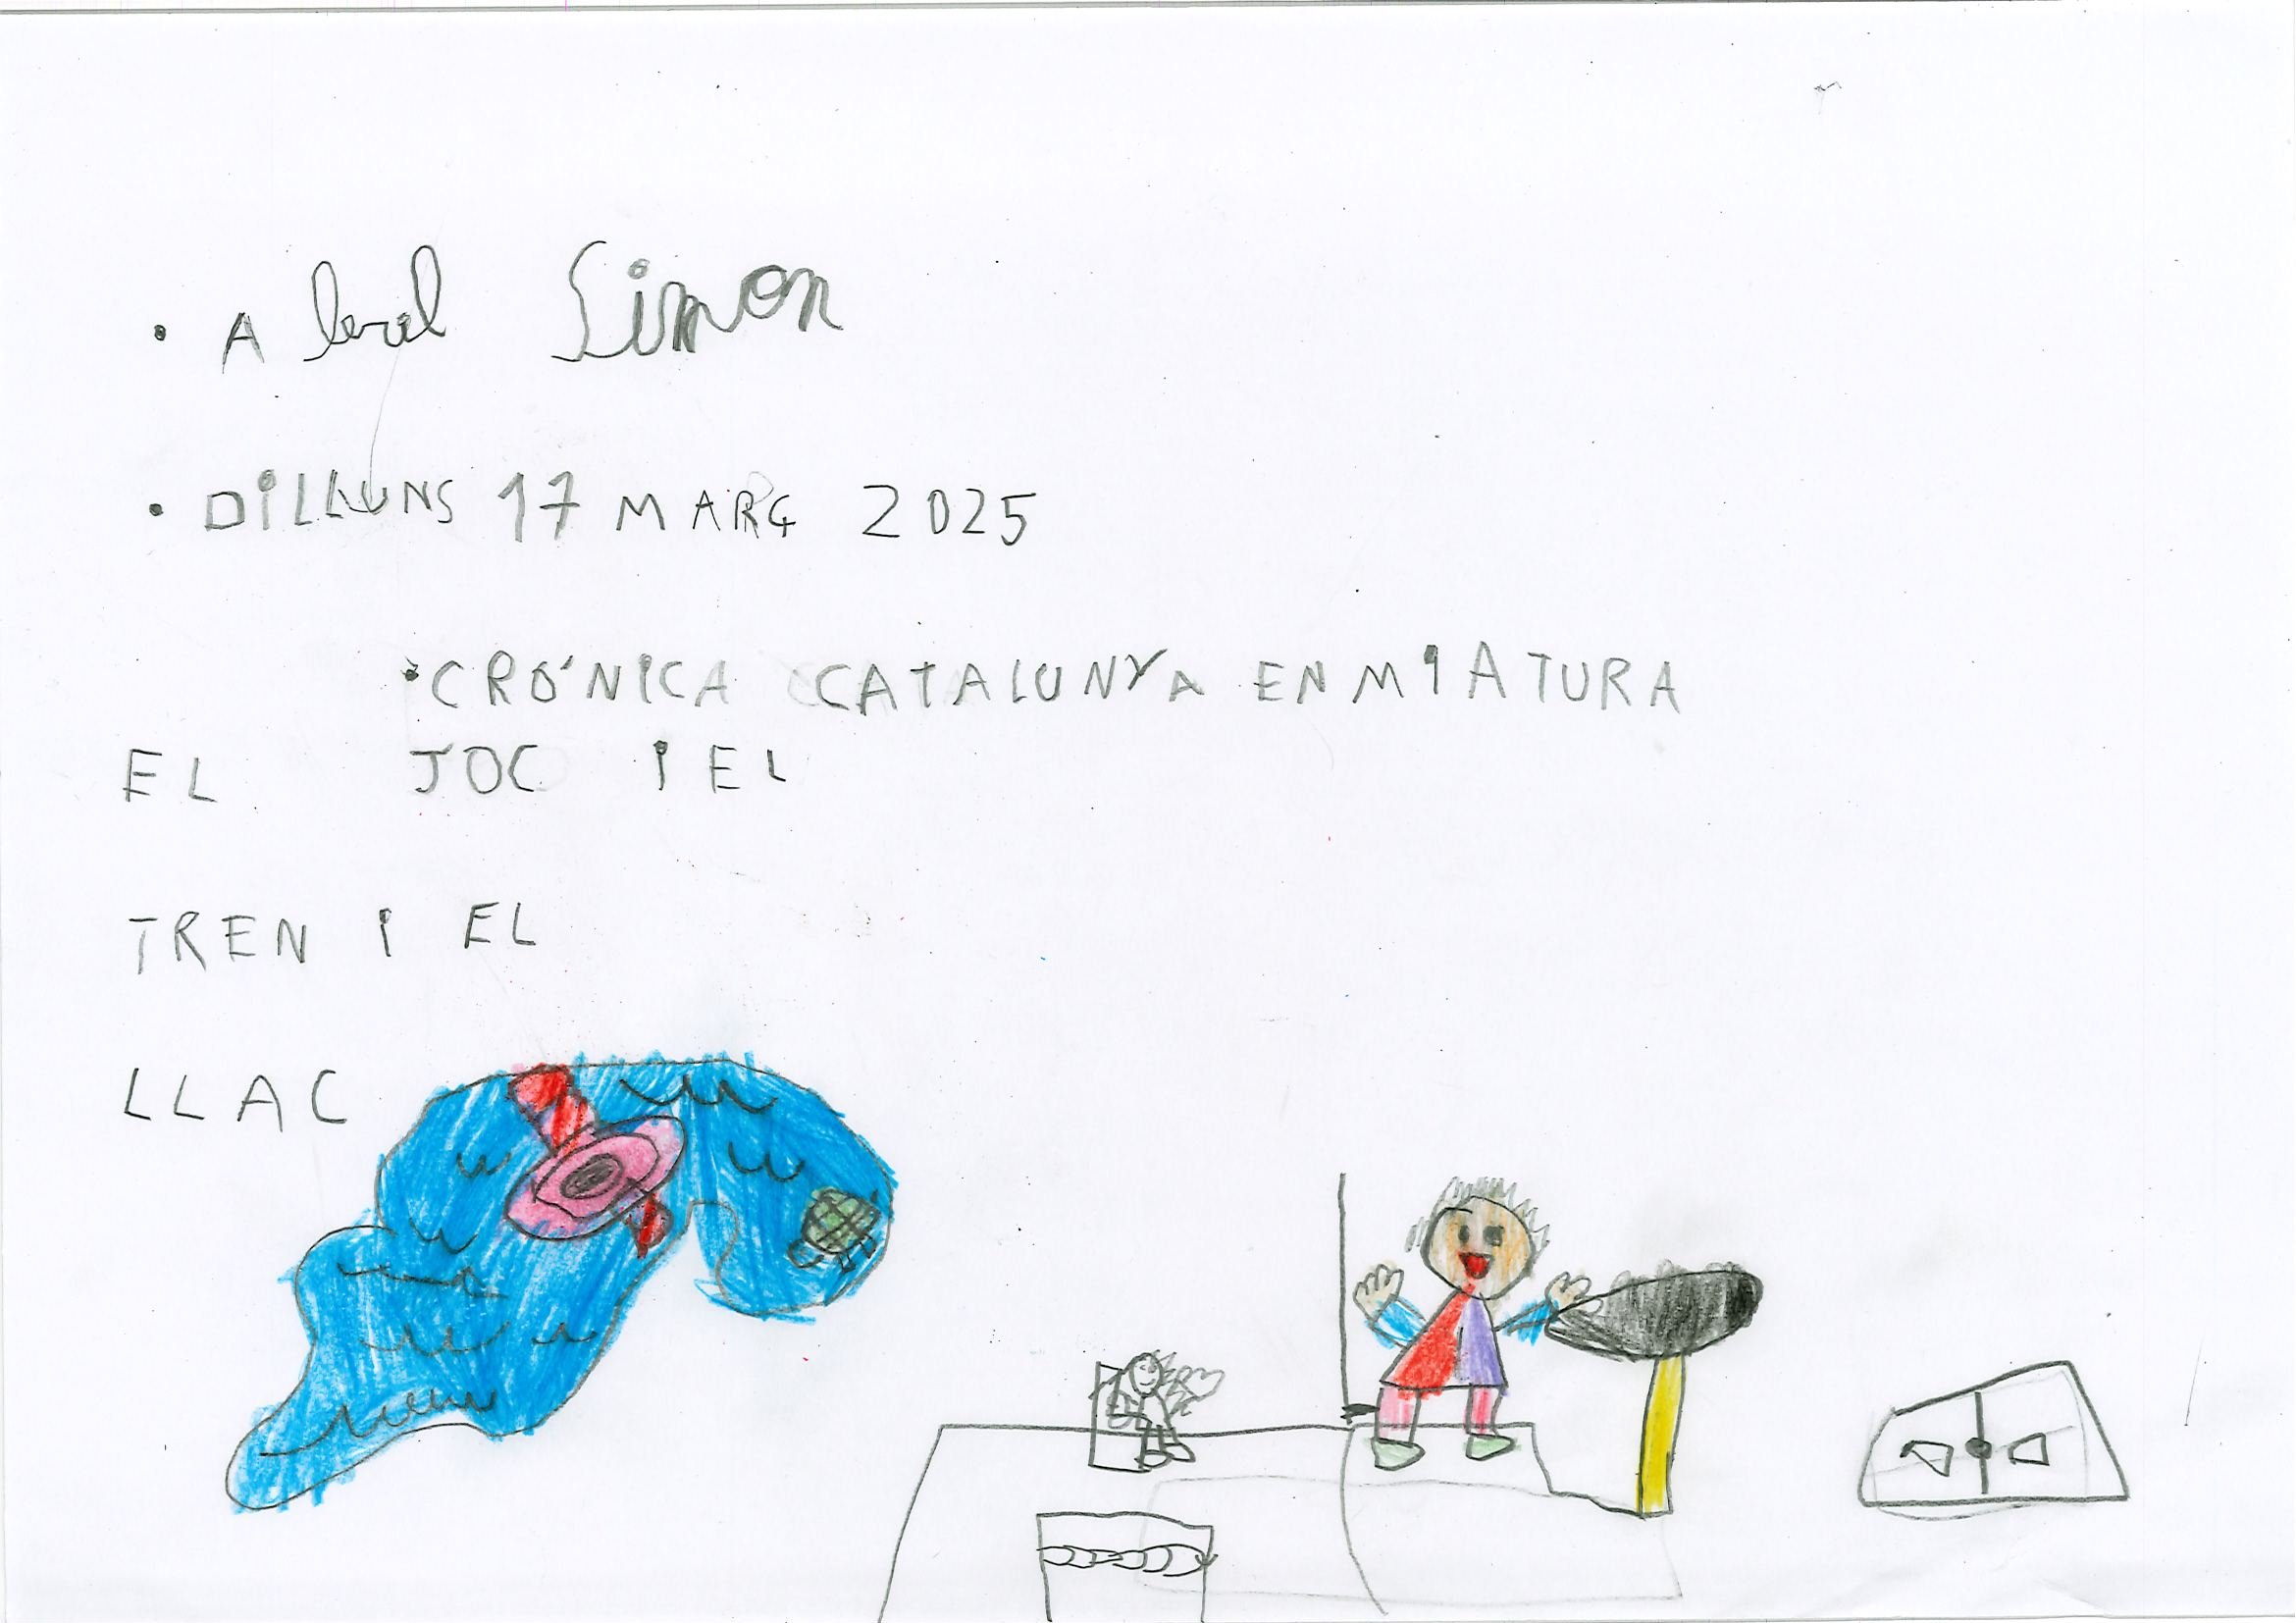 • A Simon
• DILLUNS 17 MARÇ 2025
• CRÓNICA CATALUNYA EN MIATURA
EL JOC I EL
TREN I EL
LLAC